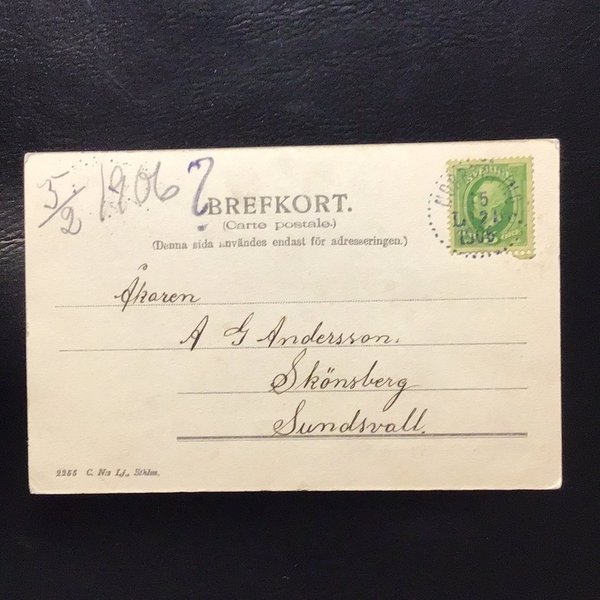 5/2 1906?
BREFKORT.
(Carte postale.)
(Denna sida användes endast för adresseringen.)
SVERIGE
5
1906
Åkaren
A G Andersson.
Skönsberg
Sundsvall.
2255 C. N:s Lj., Sthlm.